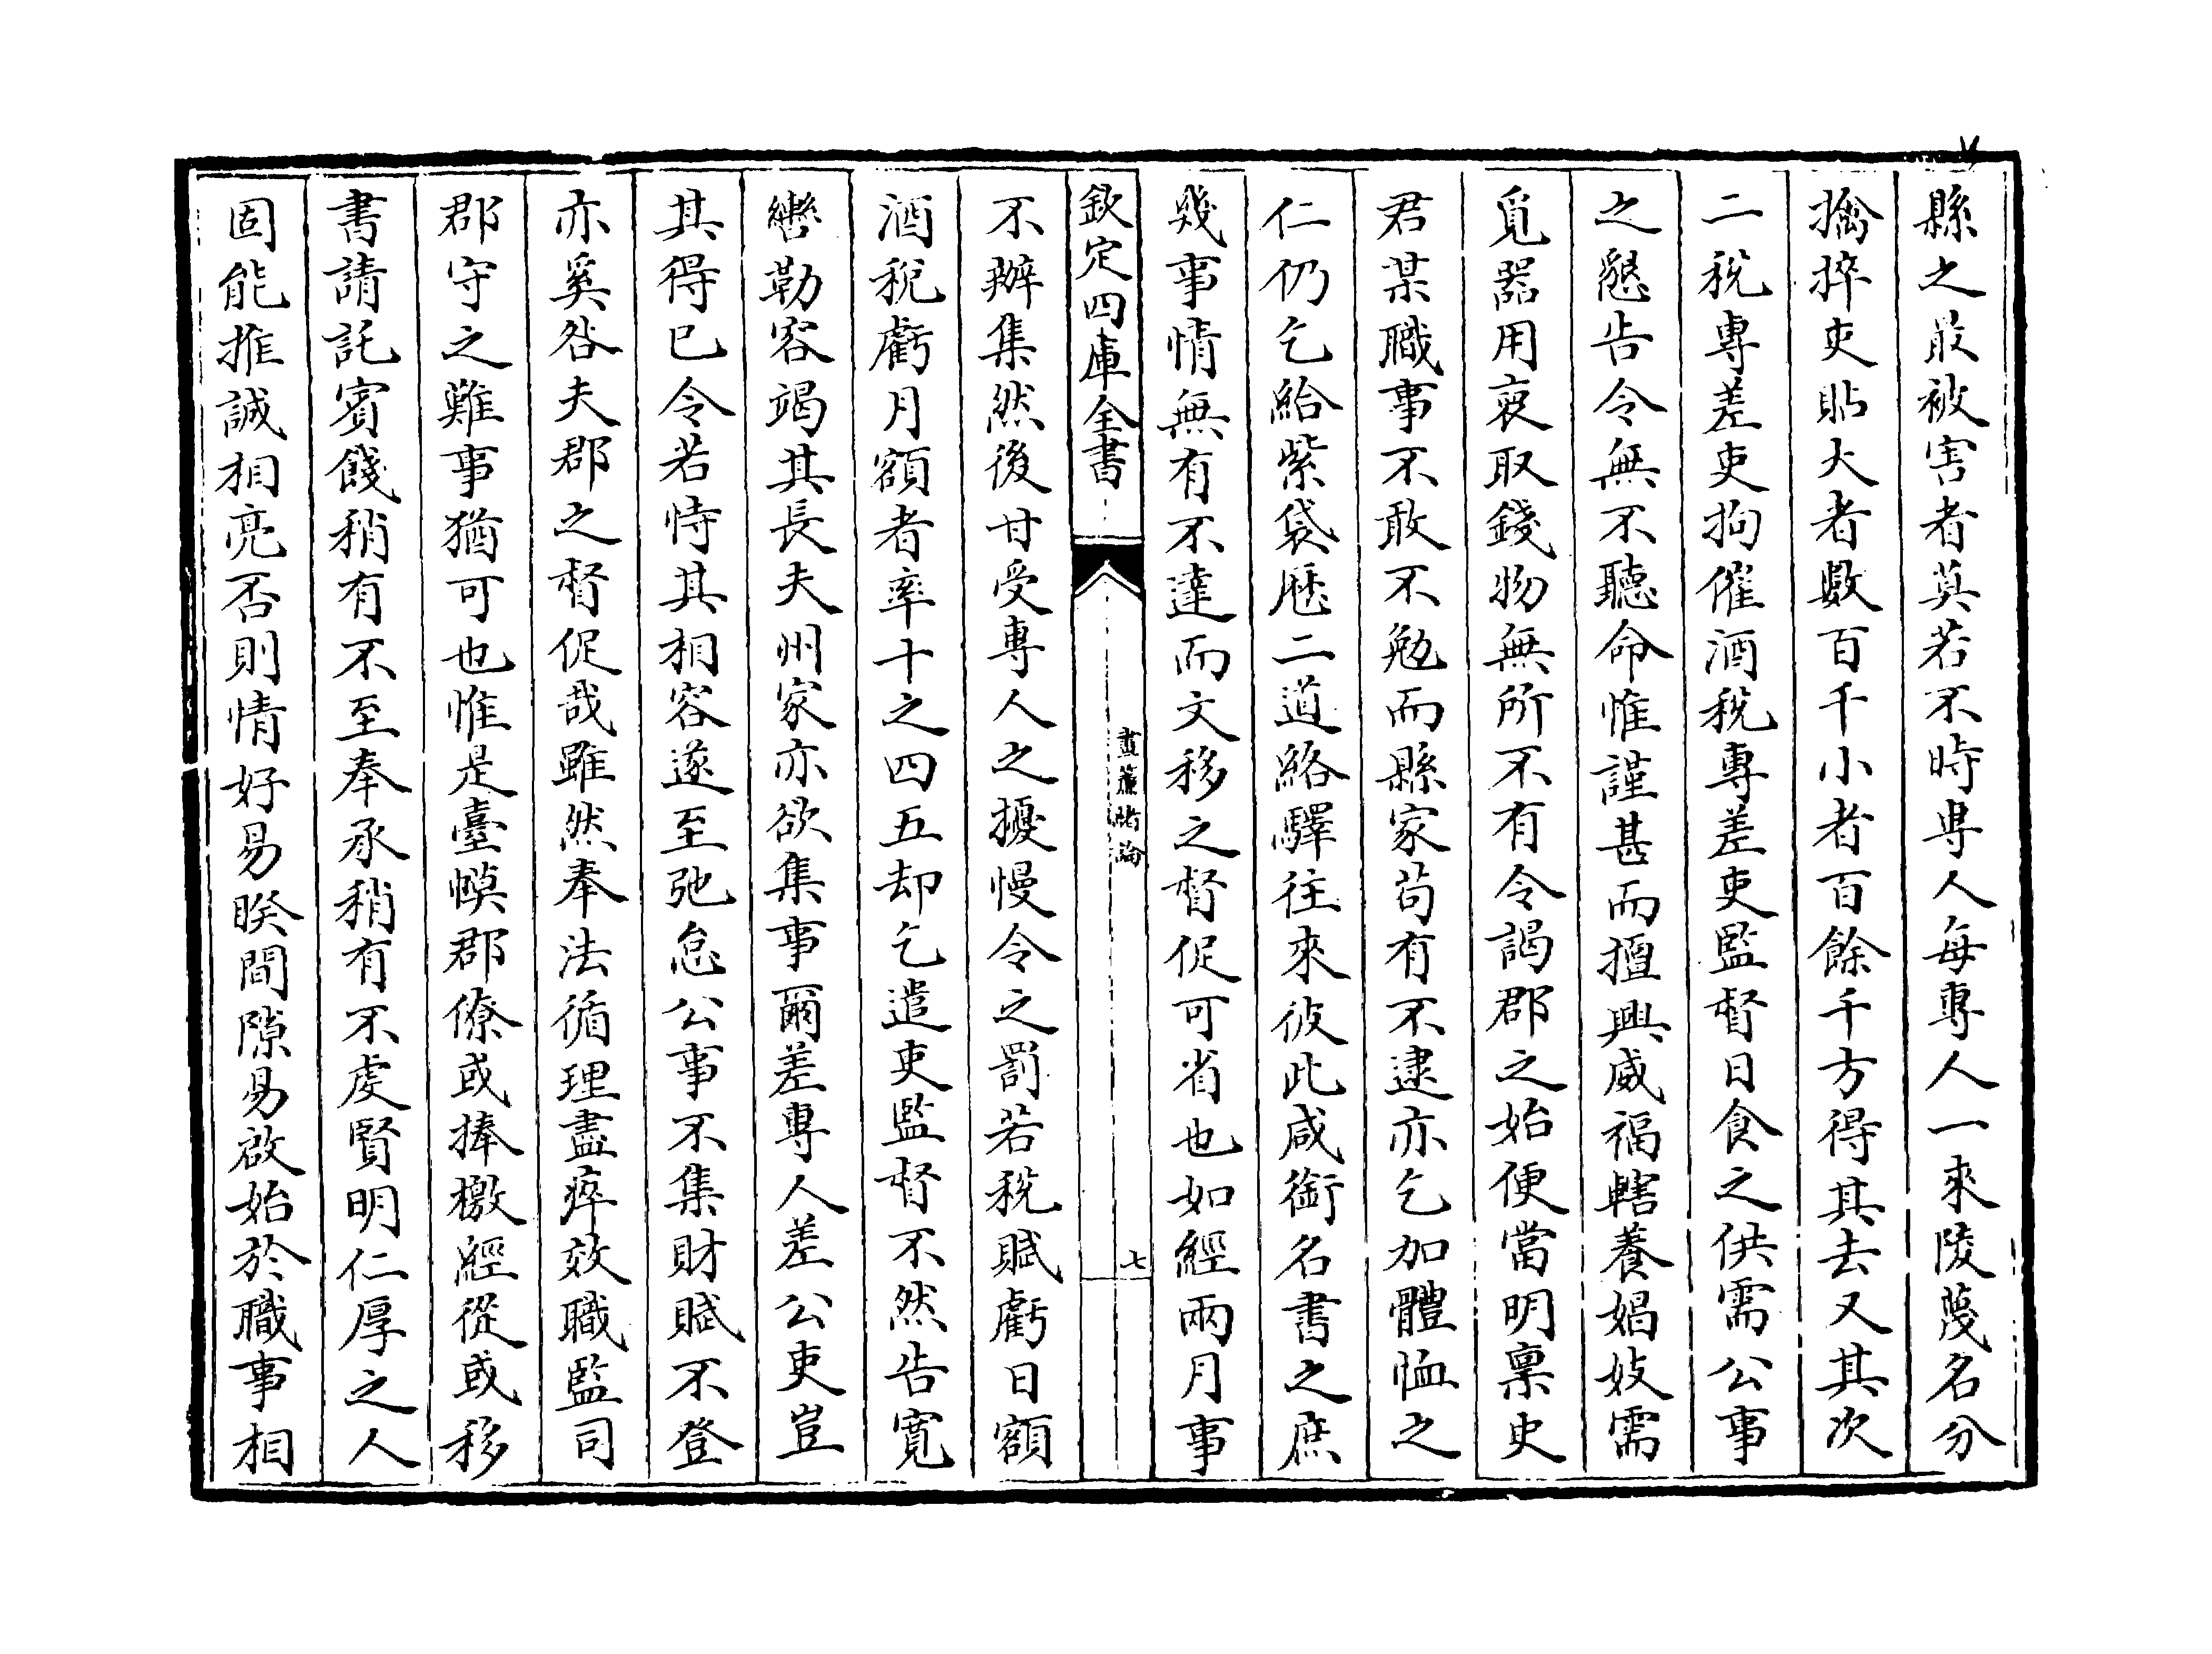 縣之最被害者莫若不時專人每專人一來陵蔑名分
擒捽吏貼大者數百千小者百餘千方得其去又其次
二税專差吏拘催酒税專差吏監督日食之供需公事
之懇告令無不聽命惟謹甚而擅興威福轄養娼妓需
覓器用裒取錢物無所不有令謁郡之始便當明稟史
君某職事不敢不勉而縣家苟有不逮亦乞加體恤之
仁仍乞給紫袋厯二道絡驛往來彼此咸銜名書之庶
幾事情無有不達而文移之督促可省也如經兩月事
欽定四庫全書
晝簾緒論
七
不辦集然後甘受專人之擾慢令之罰若税賦虧日額
酒税虧月額者率十之四五却乞遣吏監督不然告寛
轡勒容竭其長夫州家亦欲集事爾差專人差公吏豈
其得已令若恃其相容遂至弛怠公事不集財賦不登
亦奚咎夫郡之督促哉雖然奉法循理盡瘁效職監司
郡守之難事猶可也惟是臺幙郡僚或捧檄經從或移
書請託賓餞稍有不至奉承稍有不虔賢明仁厚之人
固能推誠相亮否則情好易睽間隙易啟始於職事相